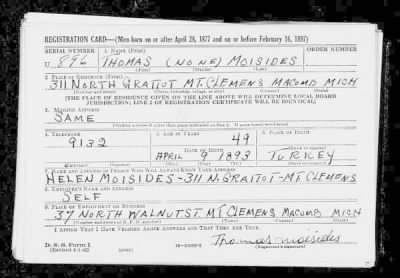 REGISTRATION CARD—(Men born on or after April 28, 1877 and on or before February 16, 1897)
SERIAL NUMBER 1. NAME (Print) ORDER NUMBER
U 896 THOMAS (NONE) MOISIDES
(First) (Middle) (Last)
2. PLACE OF RESIDENCE (Print)
311 NORTH GRATIOT MT. CLEMENS MACOMB MICH
(Number and street) (Town, township, village or city) (County) (State)
[THE PLACE OF RESIDENCE GIVEN ON THE LINE ABOVE WILL DETERMINE LOCAL BOARD
JURISDICTION; LINE 2 OF REGISTRATION CERTIFICATE WILL BE IDENTICAL]
3. MAILING ADDRESS
SAME
[Mailing address if other than place indicated on line 2. If same insert word same]
4. TELEPHONE 5. AGE IN YEARS 6. PLACE OF BIRTH
9132 49
DATE OF BIRTH
APRIL 9 1893 TURKEY
7. NAME AND ADDRESS OF PERSON WHO WILL ALWAYS KNOW YOUR ADDRESS
HELEN MOISIDES-311 N. GRATIOT-MT CLEMENS
8. EMPLOYER'S NAME AND ADDRESS
SELF
9. PLACE OF EMPLOYMENT OR BUSINESS
37 NORTH WALNUT ST. MT CLEMENS MACOMB MICH
(Number and street or R. F. D. number) (Town) (County) (State)
I AFFIRM THAT I HAVE VERIFIED ABOVE ANSWERS AND THAT THEY ARE TRUE.
Thomas moisides
D. S. S. Form 1
(Revised 4-1-42) (over) (Registrant's signature)